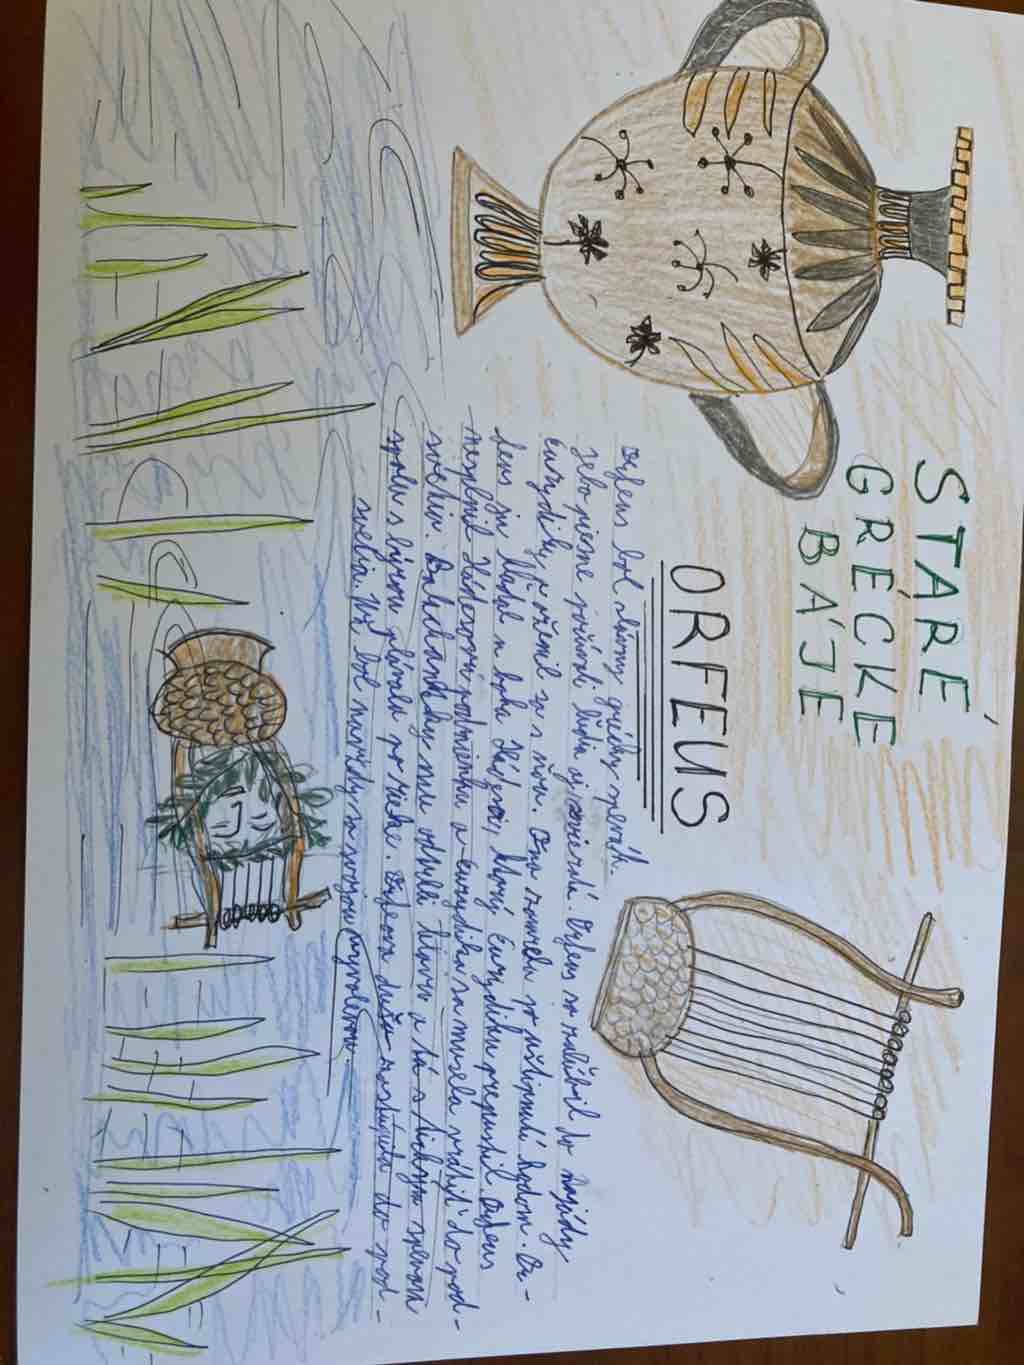 STARÉ
GRÉCKE
BÁJE
ORFEUS
Orfeus bol slávny grécky spevák.
Jeho piesne počúvali ľudia aj zvieratá. Orfeus sa zaľúbil do najády
Eurydiky, oženil sa s ňou. Ona zomrela po uštipnutí hadom. Or-
feus ju hľadal u boha Hádesa, ktorý Eurydiku prepustil. Orfeus
nesplnil Hádesovu podmienku a Eurydika sa musela vrátiť do pod-
svetia. Bakchantky mu odťali hlavu a tá s tichým spevom
spolu s lýrou plávala po rieke. Orfeova duša zostúpila do pod-
svetia. Už bol navždy so svojou vyvolenou.